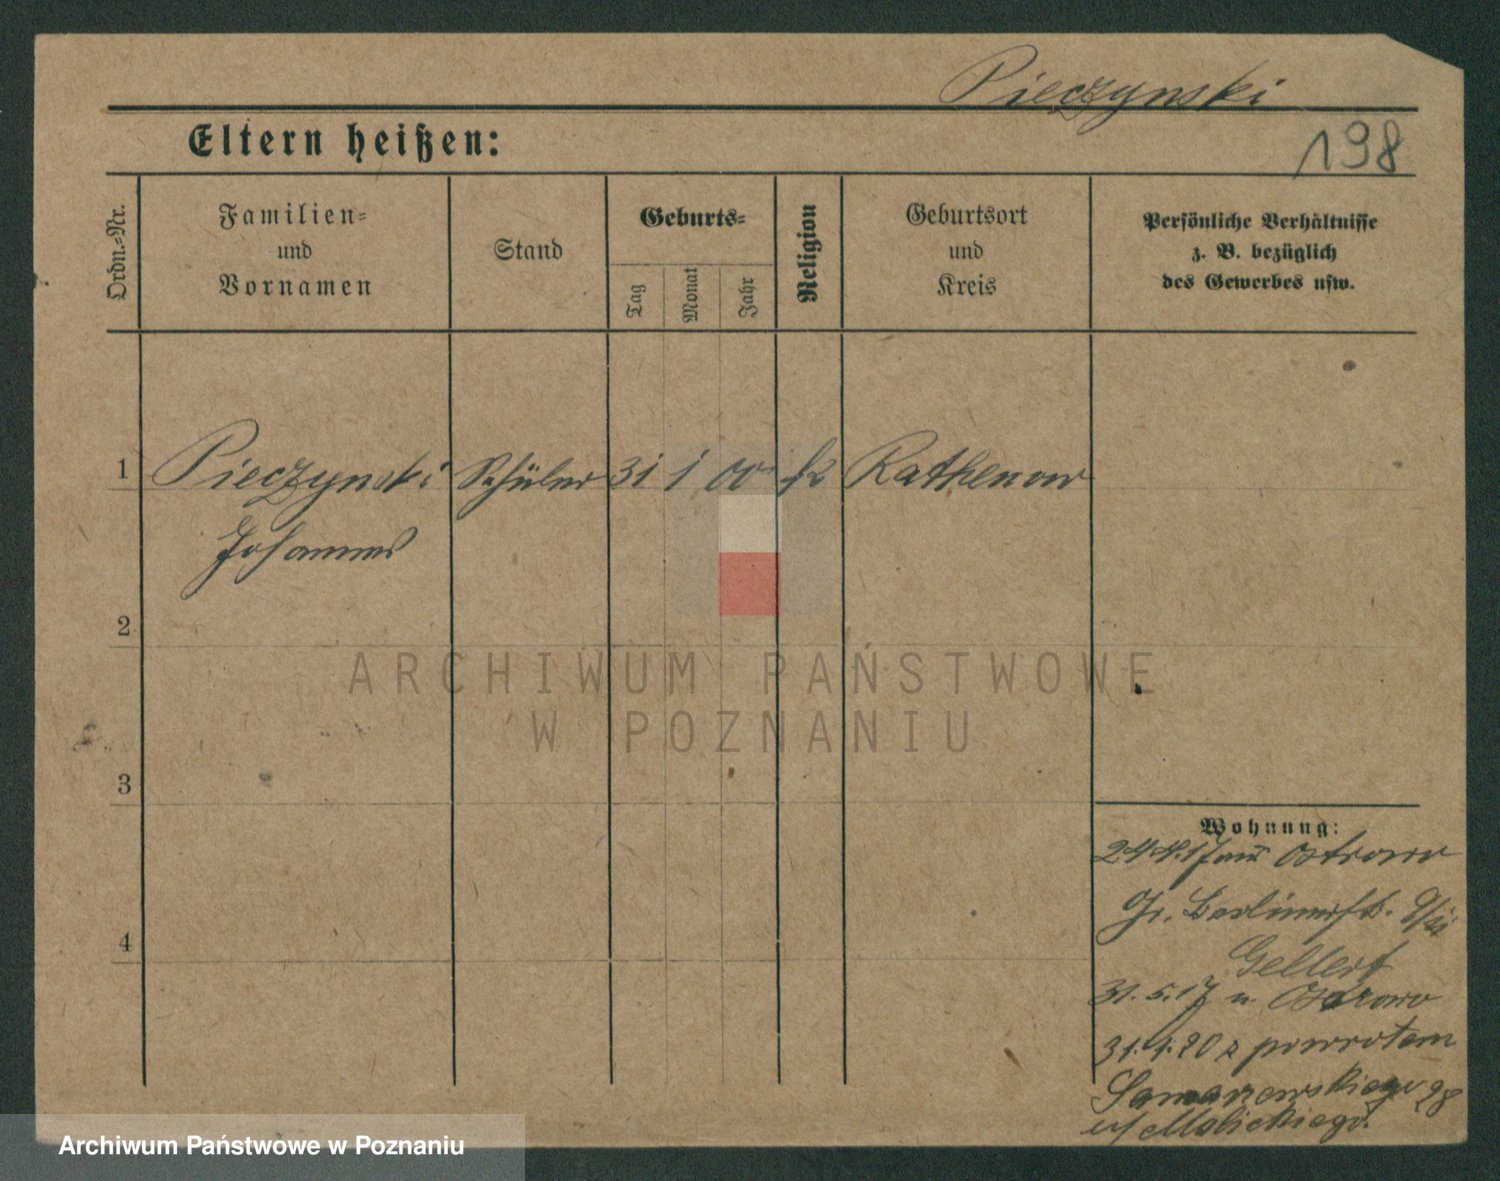 Pieczynski
Eltern heißen:
198
Ordn.=Nr.
Familien=
und
Vornamen
Stand
Geburts=
Tag
Monat
Jahr
Religion
Geburtsort
und
Kreis
Persönliche Verhältnisse
z. B. bezüglich
des Gewerbes usw.
1 Pieczynski Schüler 31 1 00 k Rathenow
Johannes
2
3
4
ARCHIWUM PAŃSTWOWE
W POZNANIU
Wohnung:
24.4.17 aus Ostrowo
Gr. Berlinerstr.
Gellert
31.5.17 n. Ostrowo
31.1.20 z powrotem
Samarzewskiego 28
u/ Malickiego.
Archiwum Państwowe w Poznaniu